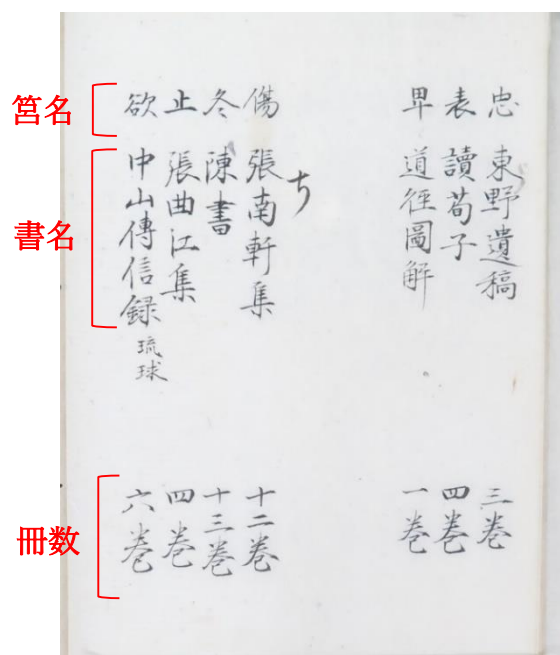 筥名
書名
冊数
忠 東野遺稿 三巻
表 讀荀子 四巻
畀 道徑圖解 一巻
ち
傷 張南軒集 十二巻
冬 陳書 十三巻
止 張曲江集 四巻
欲 中山傳信録 琉球 六巻